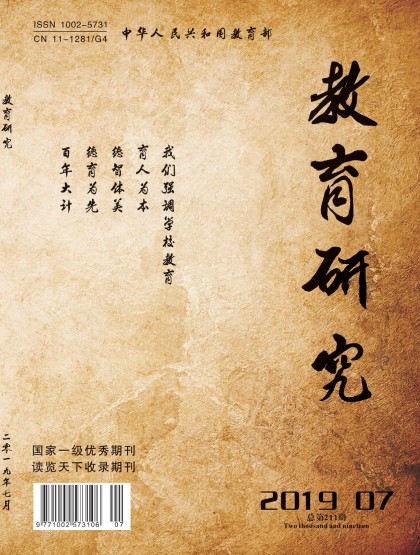 ISSN 1002-5731
CN 11-1281/G4
中华人民共和国教育部
教育研究
教育研究
我们强调学校教育
育人为本
德智体美
德育为先
百年大计
国家一级优秀期刊
读览天下收录期刊
二零一九年七月
9771002573106
07
2019 07
总第211期
Two thousand and nineteen